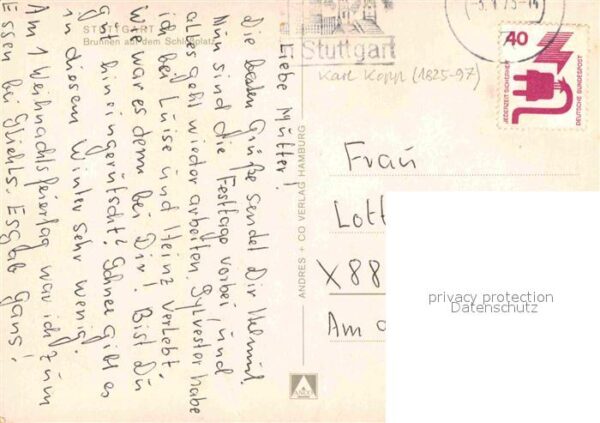 STUTTGART
Brunnen auf dem Schloßplatz
Liebe Mutter!
Die besten Grüße sendet Dir Helmut.
Nun sind die Festtage vorbei, und
alles geht wieder arbeiten. Sylvester habe
ich bei Luise und Heinz verlebt.
Wie war es denn bei Dir! Bist Du
gut hineingerutscht? Schnee gibt es
in diesem Winter sehr wenig.
Am 1 Weihnachtsfeiertag war ich zum
Essen bei Es gab Gans!
ANDRES + CO VERLAG HAMBURG
Stuttgart
Karl Kopp (1825-97)
40
JEDERZEIT SICHERHEIT
DEUTSCHE BUNDESPOST
Frau
Lott
X88
Am
privacy protection
Datenschutz